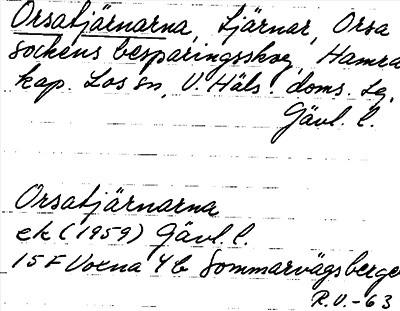 Orsatjärnarna, tjärnar, Orsa
sockens besparingsskog, Hamra
kap. Los sn, V. Häls. doms. lg,
Gävl. l.
Orsatjärnarna
ek (1959) Gävl. l.
15 F Voxna 4b Sommarvägsberge
R.V.-63